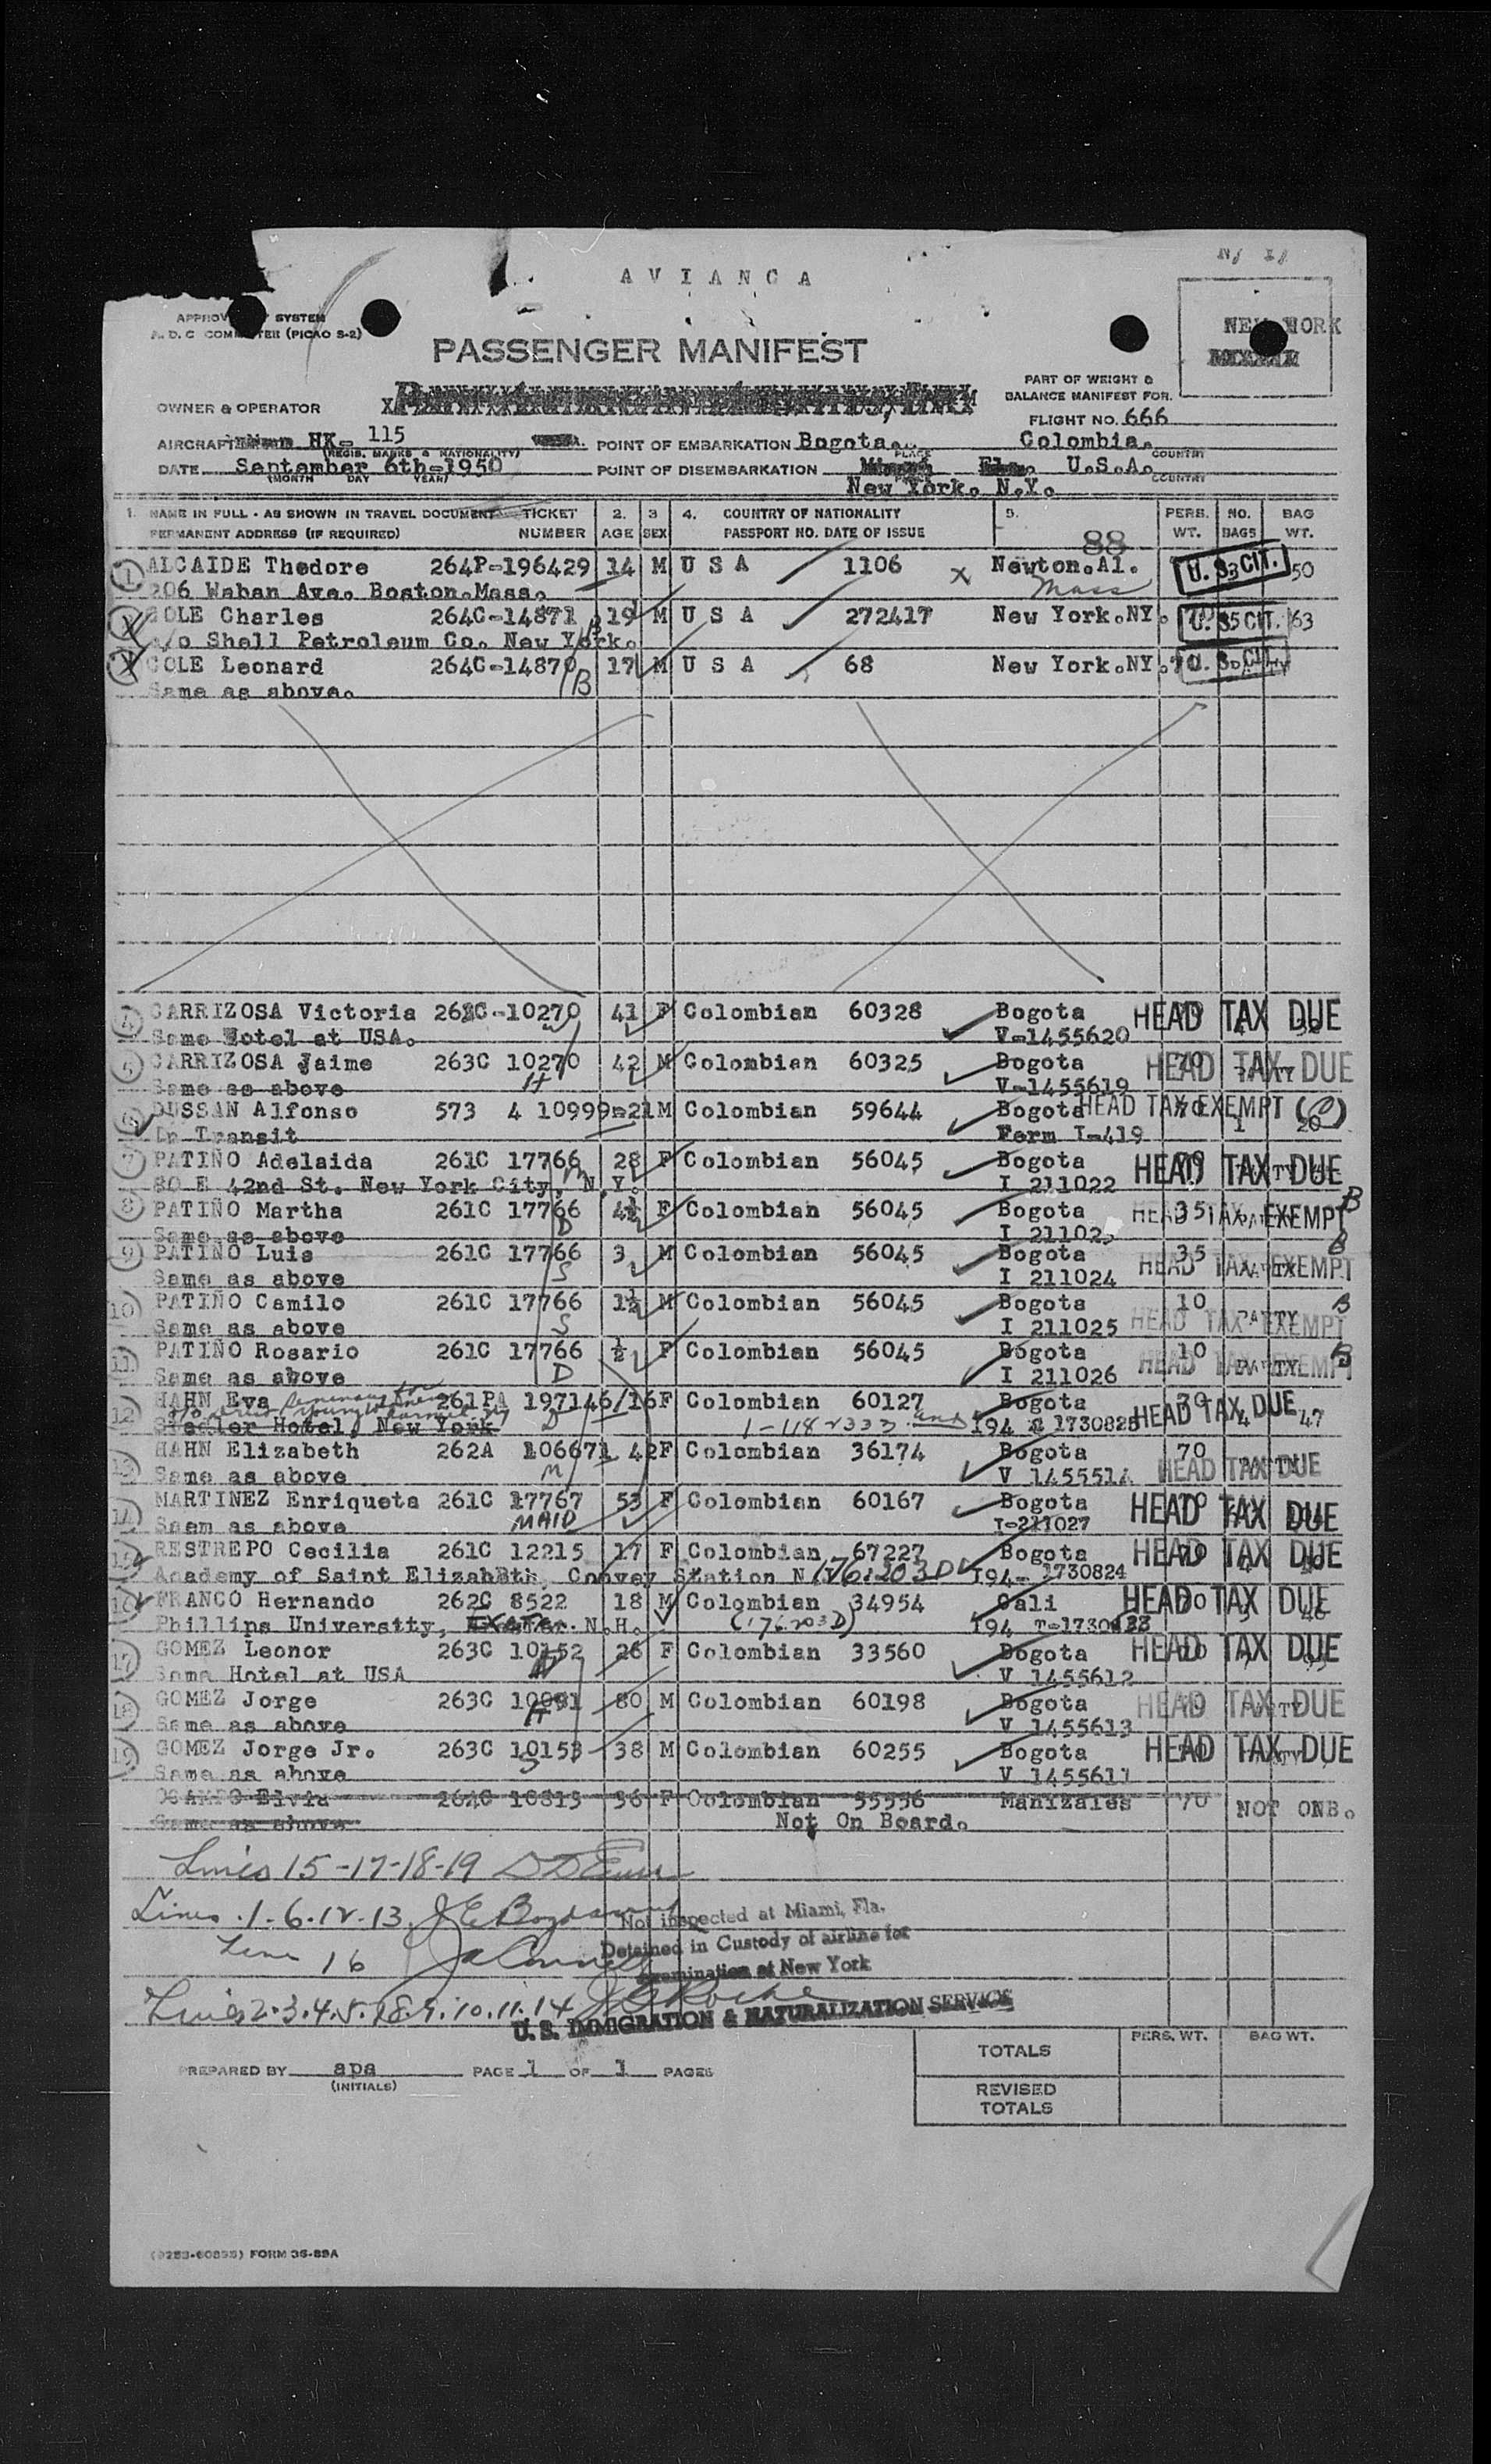 N/ I/
AVIANCA
SYSTEM
(PICAO S-2)
PASSENGER MANIFEST
NEW YORK
PART OF WEIGHT &
BALANCE MANIFEST FOR.
OWNER & OPERATOR
FLIGHT NO. 666
AIRCRAFT HK- 115 POINT OF EMBARKATION Bogota. Colombia.
(REGIS. MARKS & NATIONALITY) PLACE COUNTRY
DATE September 6th-1950 POINT OF DISEMBARKATION U.S.A.
(MONTH DAY YEAR) COUNTRY
New York. N.Y.
1. NAME IN FULL - AS SHOWN IN TRAVEL DOCUMENT TICKET 2. 3 4. COUNTRY OF NATIONALITY 5. PERS. NO. BAG
PERMANENT ADDRESS (IF REQUIRED) NUMBER AGE SEX PASSPORT NO. DATE OF ISSUE 88 WT. BAGS WT.
1 ALCAIDE Thedore 264P-196429 14 M U S A 1106 x Newton.Al. U. S. CIT. 50
206 Waban Ave. Boston.Mass. Mass
COLE Charles 264C-14871 B 19 M U S A 272417 New York.NY. U. S. CIT. 63
c/o Shell Petroleum Co. New York.
COLE Leonard 264C-14870 17 M U S A 68 New York.NY. U. S. CIT.
Same as above. B
4 CARRIZOSA Victoria 261C-10270 41 F Colombian 60328 Bogota HEAD TAX DUE
Same Hotel at USA. V-1455620
5 CARRIZOSA Jaime 263C 10270 42 M Colombian 60325 Bogota 70 HEAD TAX DUE
Same as above H V-1455619
6 DUSSAN Alfonso 573 4 10999-21 M Colombian 59644 Bogota HEAD TAX EXEMPT (C)
In Transit Form I-419 1 20
7 PATIÑO Adelaida 261C 17766 28 F Colombian 56045 Bogota HEAD TAX DUE
80 E 42nd St. New York City, N.Y. I 211022
8 PATIÑO Martha 261C 17766 4½ F Colombian 56045 Bogota 35 HEAD TAX EXEMPT B
Same as above D
9 PATIÑO Luis 261C 17766 3 M Colombian 56045 Bogota 35 HEAD TAX EXEMPT B
Same as above S I 211024
10 PATIÑO Camilo 261C 17766 1½ M Colombian 56045 Bogota 10 PARTY B
Same as above S I 211025 HEAD TAX EXEMPT
11 PATIÑO Rosario 261C 17766 ½ F Colombian 56045 Bogota 10 PARTY B
Same as above D I 211026 HEAD TAX EXEMPT
12 HAHN Eva 261PA 197146/16F Colombian 60127 Bogota 70 HEAD TAX DUE 47
Hotel, New York D 194 1730825
13 HAHN Elizabeth 262A 106671 42F Colombian 36174 Bogota 70 HEAD TAX DUE
Same as above M V 1455514
14 MARTINEZ Enriqueta 261C 17767 53 F Colombian 60167 Bogota HEAD TAX DUE
Saem as above MAID I-211027
15 RESTREPO Cecilia 261C 12215 17 F Colombian 67227 Bogota HEAD TAX DUE
Academy of Saint Elizabeth, Convey Station N 194- 1730824
16 FRANCO Hernando 262C 8522 18 M Colombian 34954 Cali HEAD TAX DUE
Phillips Universtty, N.H. (176203D) 194
17 GOMEZ Leonor 263C 10152 26 F Colombian 33560 Bogota HEAD TAX DUE
Same Hotel at USA V 1455612
18 GOMEZ Jorge 263C 80 M Colombian 60198 Bogota HEAD TAX DUE
Same as above H V 1455613
19 GOMEZ Jorge Jr. 263C 10153 38 M Colombian 60255 Bogota HEAD TAX DUE
Same as above S V 1455611
OCAMPO Elvia 262C 10815 36 F Colombian 55556 Manizales 70 NOT ONB.
Same as above Not On Board.
Lines 15-17-18-19
Lines .1-6.12.13.
Not inspected at Miami, Fla.
Detained in Custody of airline for
Line 16
examination at New York
Lines 2.3.4.5.7.8.9.10.11.14
U. S. IMMIGRATION & NATURALIZATION SERVICE
PERS. WT. BAG WT.
TOTALS
PREPARED BY apa PAGE 1 OF 1 PAGES
(INITIALS)
REVISED
TOTALS
FORM 36-89A